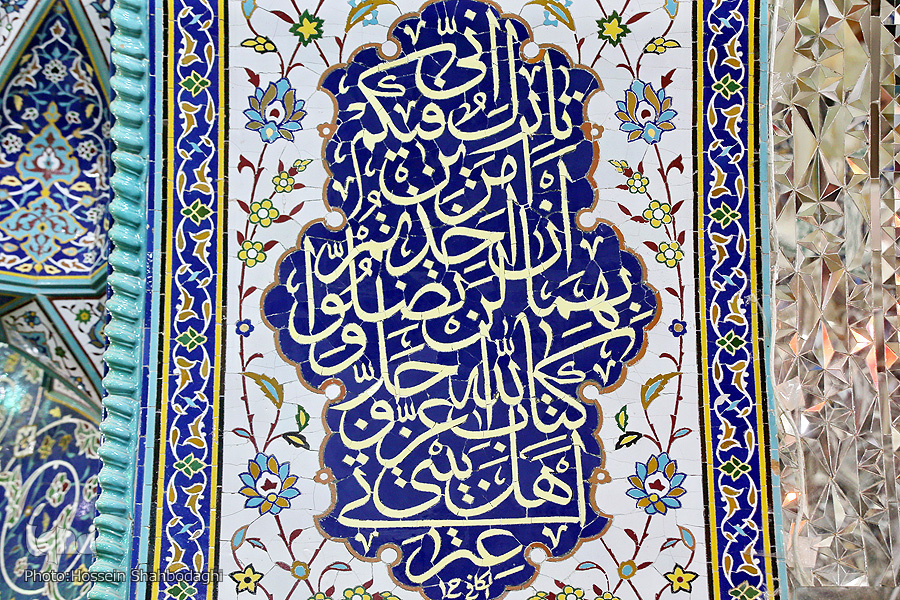 انی
تارك فیکم
امرین
ان اخذتم
بهما لن تضلوا
کتاب الله عزّ و جلّ و
اهل بیتی
عترتی
Photo:Hossein Shahbodaghi